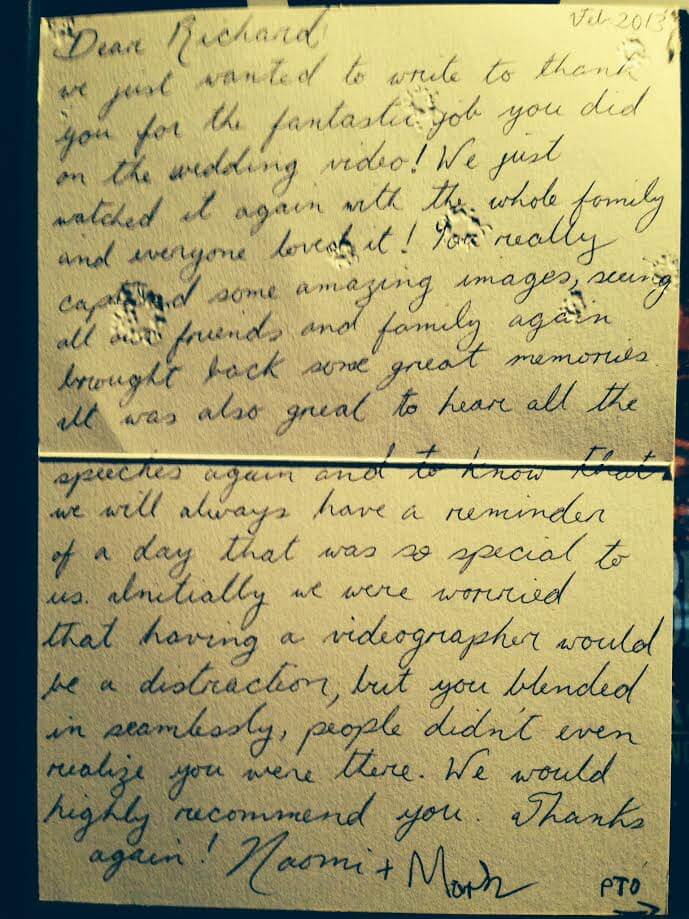 Feb 2013
Dear Richard
we just wanted to write to thank
you for the fantastic job you did
on the wedding video! We just
watched it again with the whole family
and everyone loved it! You really
captured some amazing images, seeing
all our friends and family again
brought back some great memories.
It was also great to hear all the
speeches again and to know that
we will always have a reminder
of a day that was so special to
us. Initially we were worried
that having a videographer would
be a distraction, but you blended
in seamlessly, people didn't even
realize you were there. We would
highly recommend you. Thanks
again! Naomi + Mark
PTO